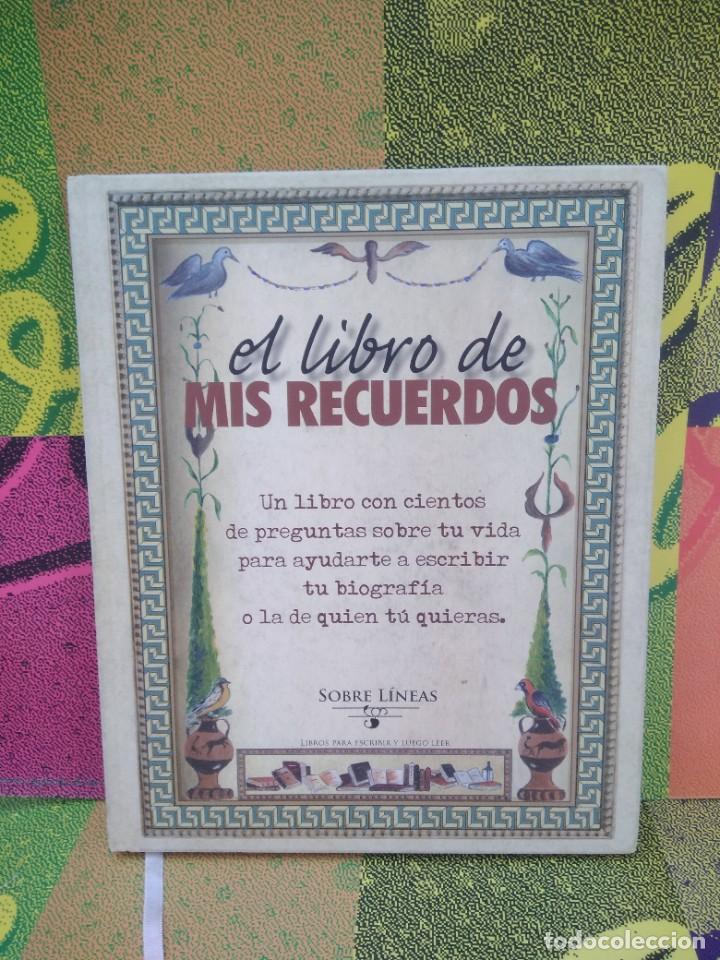 el libro de
MIS RECUERDOS
Un libro con cientos
de preguntas sobre tu vida
para ayudarte a escribir
tu biografía
o la de quien tú quieras.
SOBRE LÍNEAS
LIBROS PARA ESCRIBIR Y LUEGO LEER
todocoleccion
todocoleccion.net